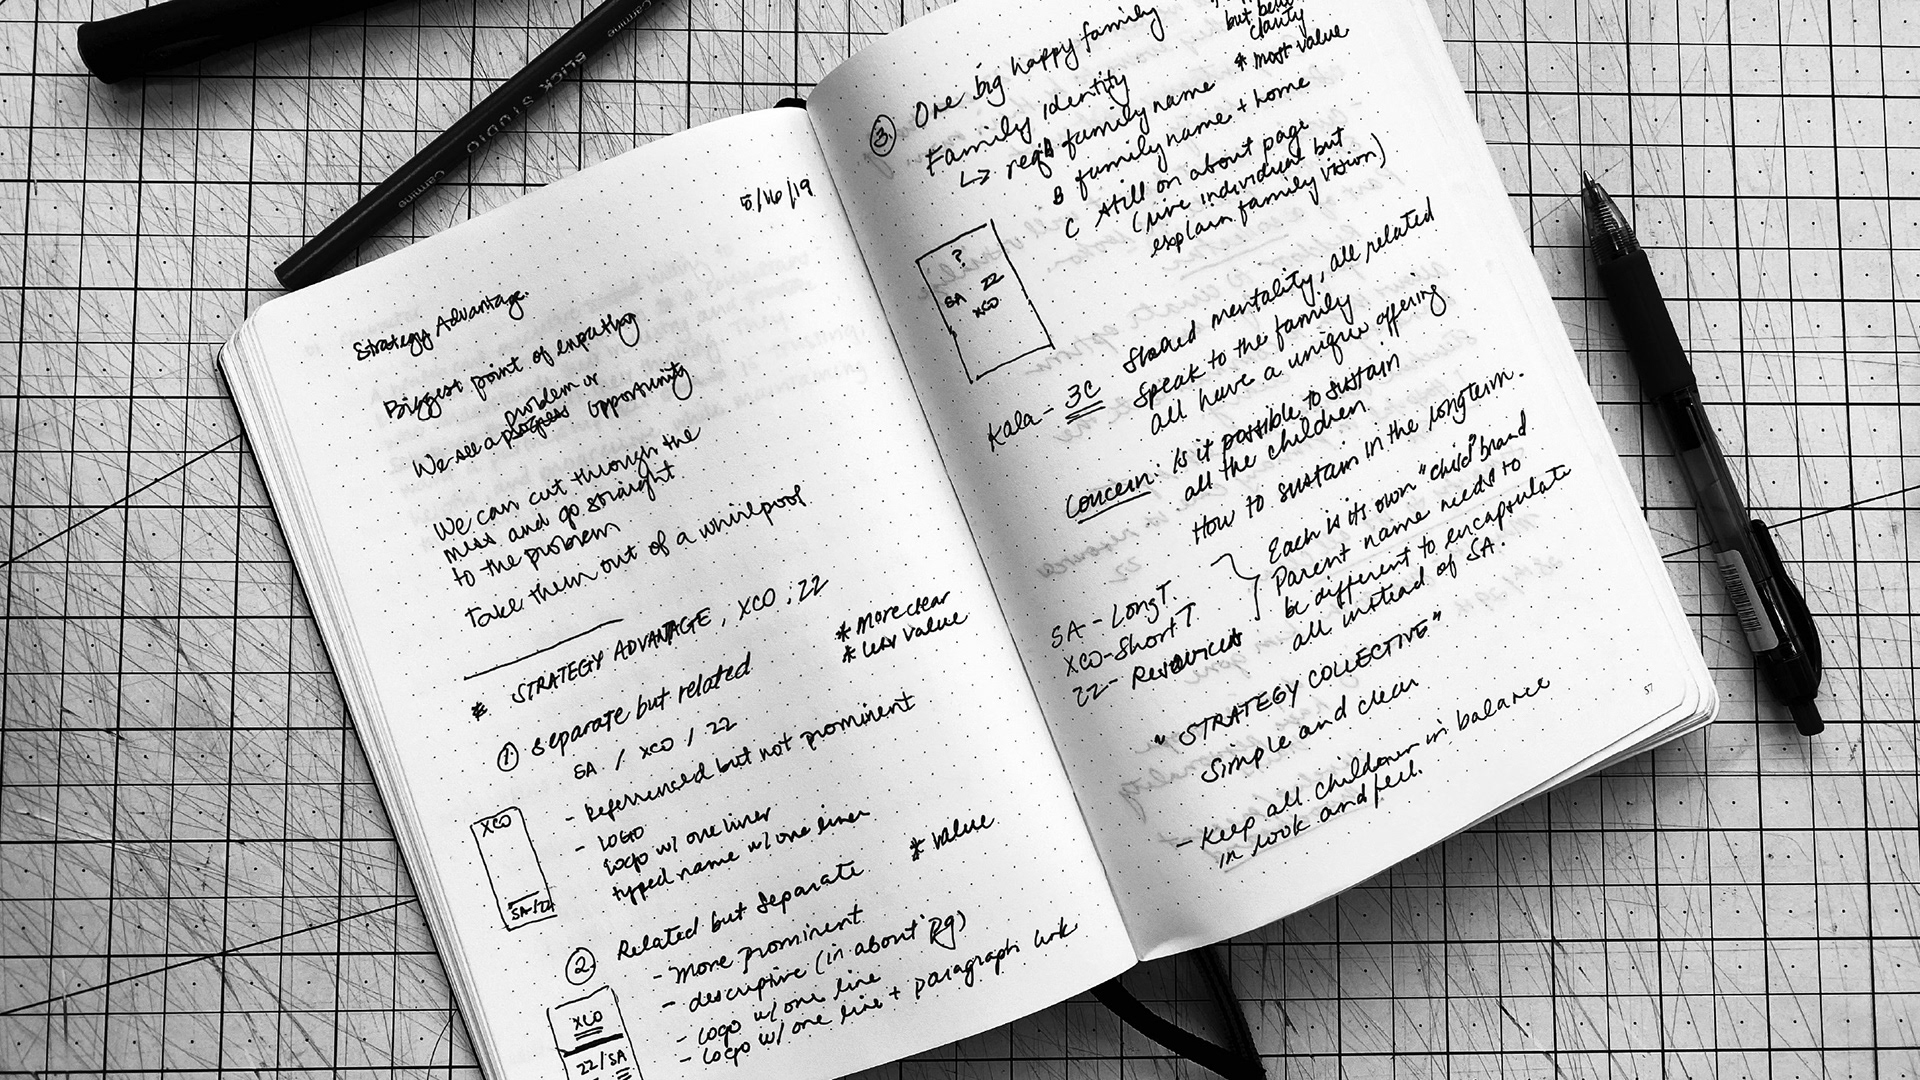 Carmine
BLICK STUDIO
Carmine
5/16/19
Strategy Advantage.
Biggest point of empathy
We see a problem or opportunity
We can cut through the
mess and go straight
to the problem
take them out of a whirlpool
* STRATEGY ADVANTAGE, XCO, 22
* More clear
* Less value
1. Separate but related
SA / XCO / 22
- Referrenced but not prominent
- LOGO
Logo w/ one liner
typed name w/ one liner
XCO
SA/22
2. Related but Separate
* Value
- More prominent
- descriptive (in about pg)
- Logo w/ one line
- Logo w/ one line + paragraph link
XCO
22/SA
but
clarity
* most value
3. One big happy family
Family identity
↳ family name
B family name + home
C still on about page
(live individual but
explain family vision)
?
SA 22
XCO
Kala - 3C
Shared mentality, all related
Speak to the family
all have a unique offering
Concern: Is it possible to sustain
all the children
How to sustain in the longterm.
SA - Long T.
XCO - Short T
22 - Resources
Each is its own "child" brand
Parent name needs to
be different to encapsulate
all instead of SA.
"STRATEGY COLLECTIVE"
Simple and clear
- Keep all children in balance
in look and feel.
57